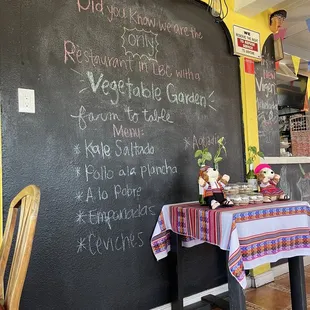 Did you know we are the
ONLY
Restaurant in LBC with a
Vegetable Garden
farm to table
Menu:
* Kale Saltado
* Pollo a la plancha
* A lo Pobre
* Empanadas
* Ceviches